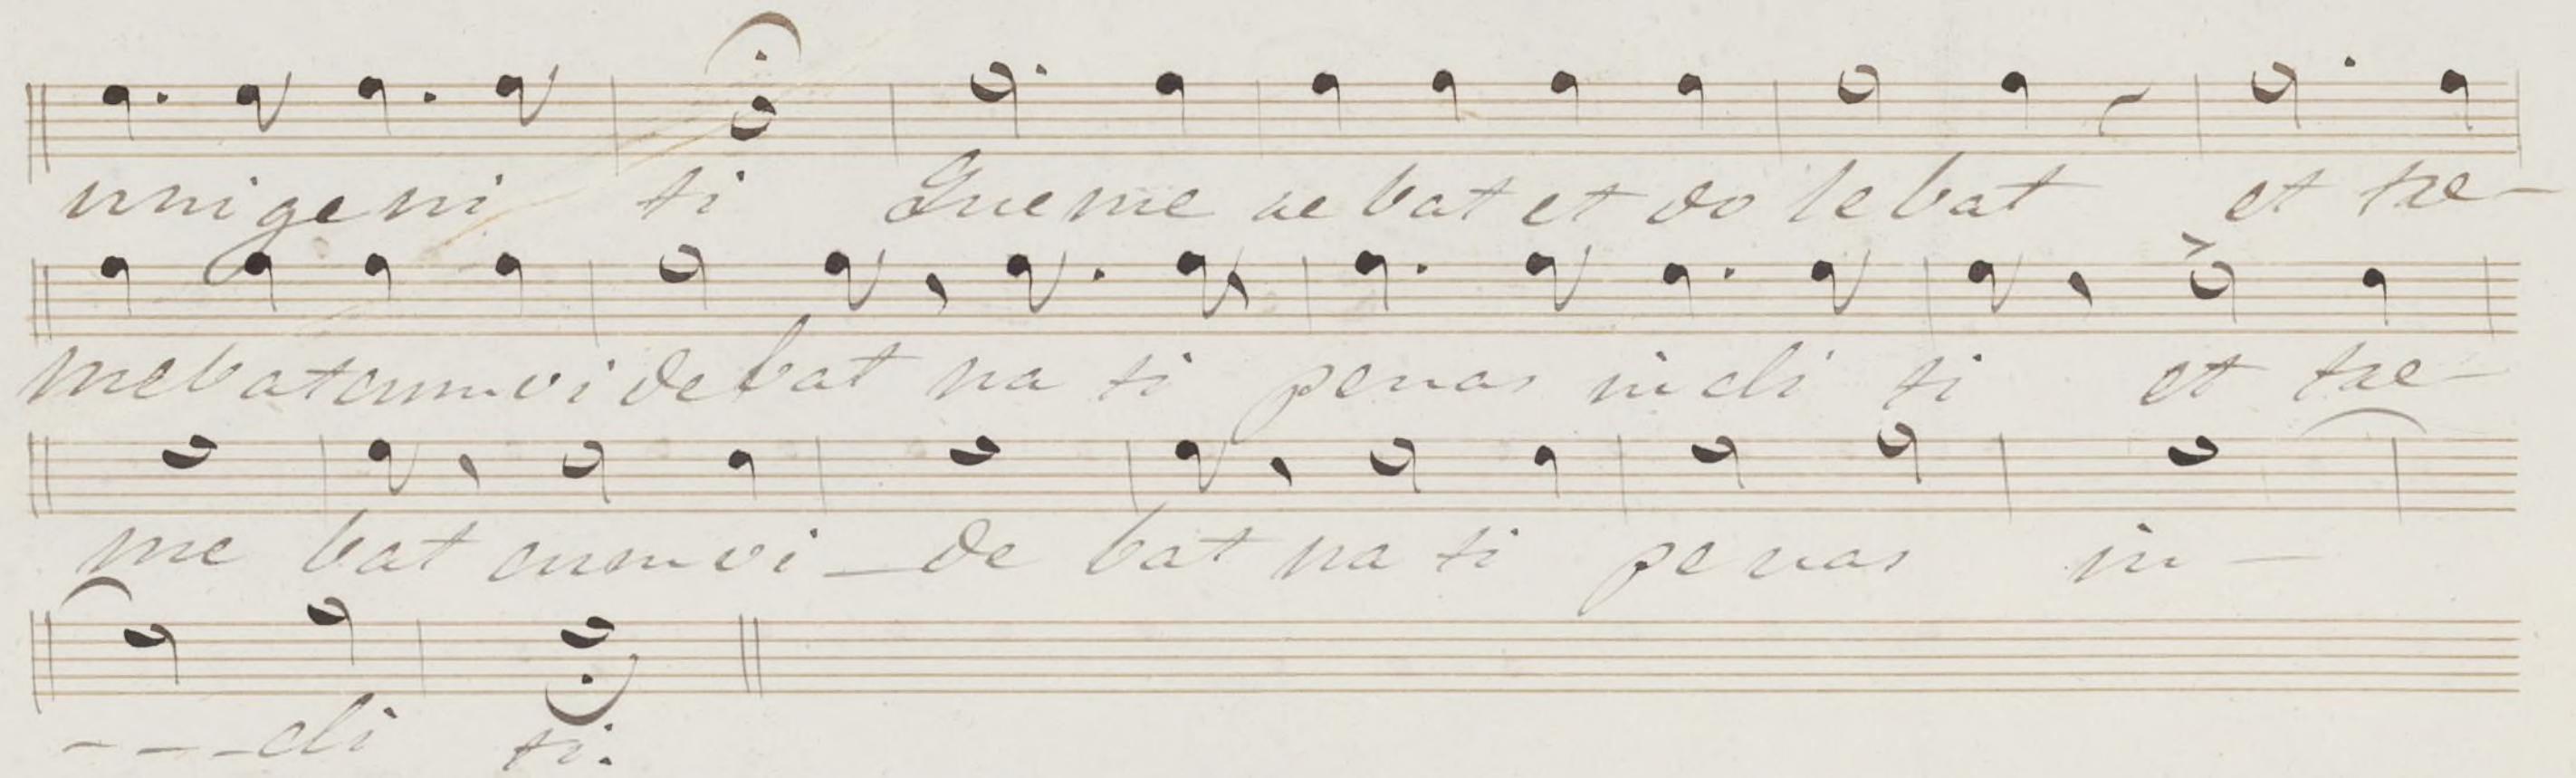 unigeni ti Que me re bat et do le bat et tre-
mebat cum vi debat na ti penas incli ti et tre-
me bat cum vi - de bat na ti pe nas in -
- - - cli ti.